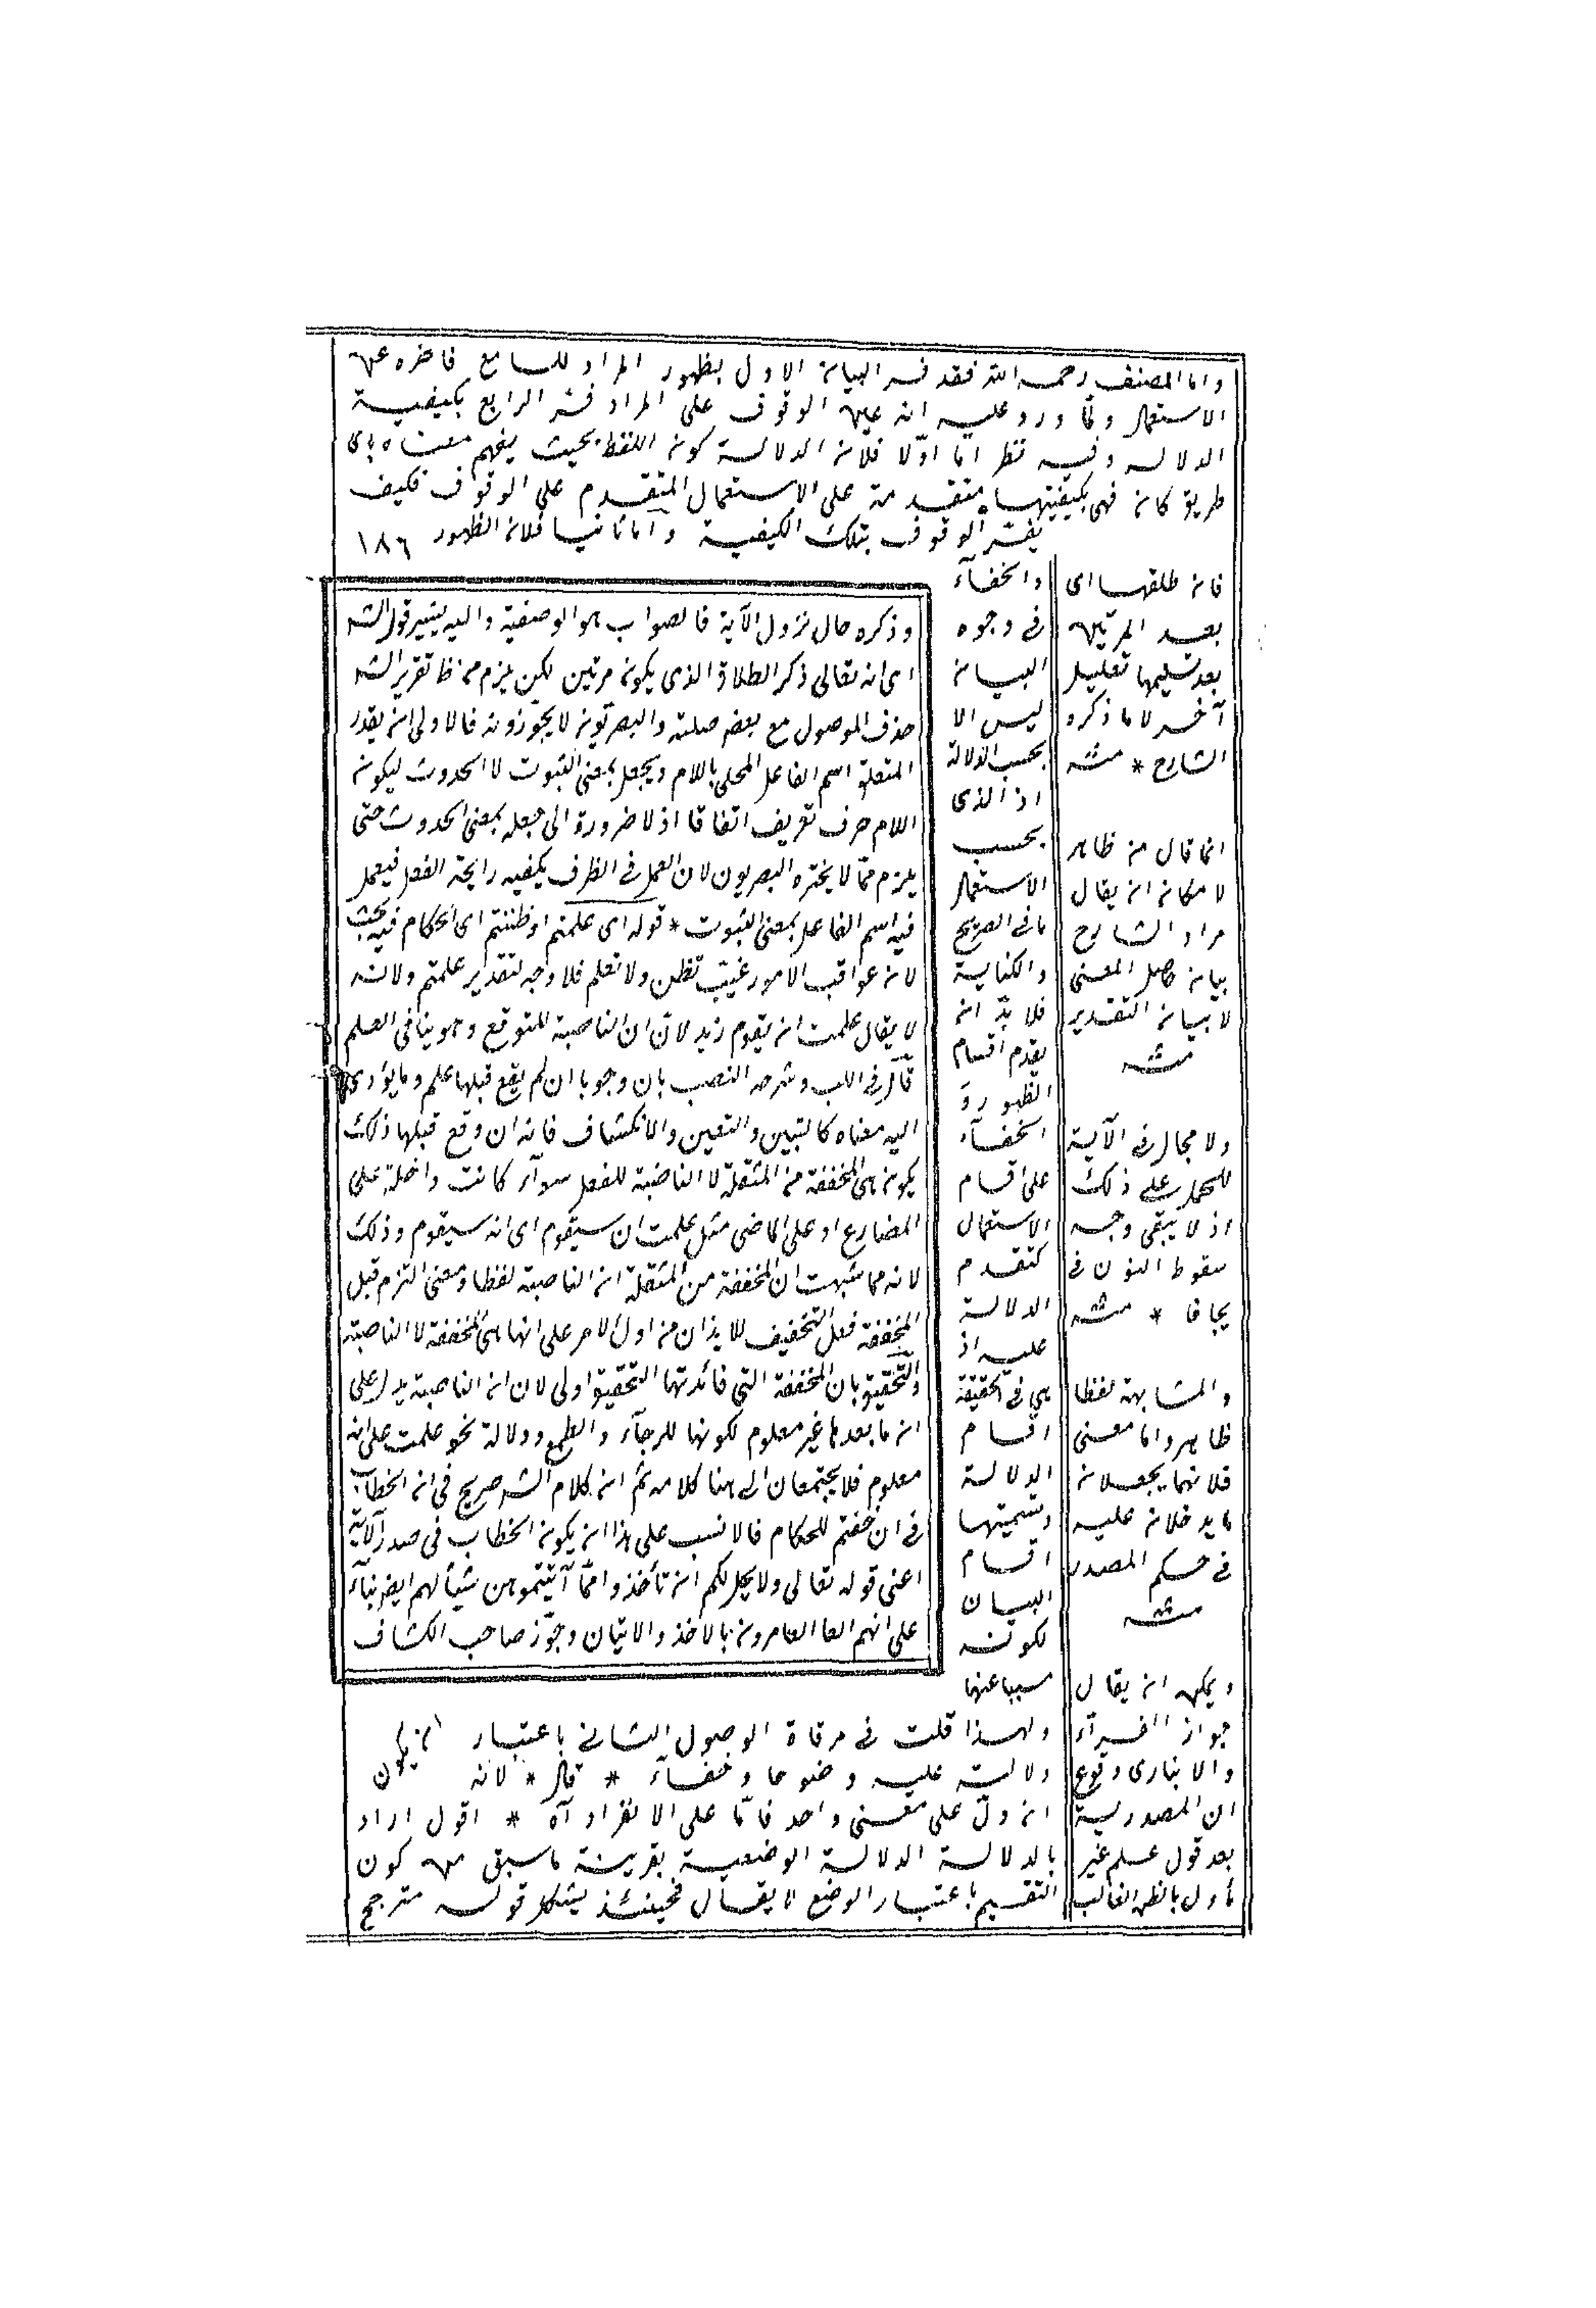 واما المصنف رحمه الله فقد فسر البيان الاول بظهور المراد للسامع فاخره عن
الاستعمال ولما ورد عليه انه عين الوقوف على المراد فسر الرابع بكيفية
الدلالة وفيه نظر اما اولا فلان الدلالة كون اللفظ بحيث يفهم معناه باى
طريق كان فهى بكيفيتها متقدمة على الاستعمال المتقدم على الوقوف فكيف
يفسر الوقوف بتلك الكيفية واما ثانيا فلان الظهور ١٨٦
والخفآء
فى وجوه
البيان
ليس الا
بحسب الدلالة
اذ الذى
بحسب
الاستعمال
مافى الصريح
والكناية
فلا بد ان
يقدم اقسام
الظهور و
الخفآء
على اقسام
الاستعمال
كتقدم
الدلالة
عليه اذ
هى فى الحقيقة
اقسام
الدلالة
وتسميتها
اقسام
البيان
لكونه
مسببا عنها
ولهذا قلت فى مرقاة الوصول الثانى باعتبار
دلالته عليه وضوحا وخفآء * قال * لانه
ان دل على معنى واحد فاما على الانفراد آه * اقول اراد
بالدلالة الدلالة الوضعية بقرينة ما سبق من كون
التقسيم باعتبار الوضع لا يقال فحينئذ يشكل قوله مترجح
وذكره حال نزول الآية فالصواب هو الوصفية واليه يشير قول الشه
اى انه تعالى ذكر الطلاق الذى يكون مرتين لكن يلزم من ظا تقرير الشه
حذف الموصول مع بعض صلته والبصريون لا يجوزونه فالاولى ان يقدر
المتعلق اسم الفاعل المحلى باللام ويجعل بمعنى الثبوت لا الحدوث ليكون
اللام حرف تعريف اتفاقا اذ لا ضرورة الى جعله بمعنى الحدوث حتى
يلزم ما لا يختره البصريون لان العمل فى الظرف يكفيه رايحة الفعل فيعمل
فيه اسم الفاعل بمعنى الثبوت * قوله اى علمتم او ظننتم اى الحكام فيه بحث
لان عواقب الامور غيب تظن ولا تعلم فلا وجه لتقدير علمتم ولانه
لا يقال علمت ان يقوم زيد لان ان الناصبة للتوقع وهو ينافى العلم
قال فى اللب وشرحه النصب بان وجوبا ان لم يقع قبلها علم وما يؤدى
اليه معناه كالتبين والتعين والانكشاف فانه ان وقع قبلها ذلك
يكون هى المخففة من المثقلة لا الناصبة للفعل سوآء كانت داخلة على
المضارع او على الماضى مثل علمت ان سيقوم اى انه سيقوم وذلك
لانه مما شبهت ان المخففة من المثقلة ان الناصبة لفظا ومعنى التزم قبل
المخففة فعل التخفيف للايذان من اول الامر على انها هى المخففة لا الناصبة
والتحقيق بان المخففة التى فائدتها التحقيق اولى لان ان الناصبة يدل على
ان ما بعدها غير معلوم لكونها للرجآء والطمع ودلالة نحو علمت على انه
معلوم فلا يجتمعان الى هنا كلامه ثم ان كلام الشه صريح فى ان الخطاب
فى ان خفتم للحكام فالانسب على هذا ان يكون الخطاب فى صدر الآية
اعنى قوله تعالى ولا يحل لكم ان تأخذوا مما آتيتموهن شيأ لهم ايضا بنآء
على انهم الآمرون بالاخذ والاتيان وجوز صاحب الكشاف
فان طلقها اى
بعد المرتين
بعد تسليمها تعليل
آخر لا ما ذكره
الشارح * منه
انما قال من ظاهر
لامكان ان يقال
مراد الشارح
بيان حاصل المعنى
لا بيان التقدير
منه
ولا مجال فى الآية
للحمل على ذلك
اذ لا يبقى وجه
سقوط النون فى
يخافا * منه
والمشابهة لفظا
ظاهر واما معنى
فلانهما يجعلان
ما يدخلان عليه
فى حكم المصدر
منه
ويمكن ان يقال
جواز الفرآء
والانبارى وقوع
ان المصدرية
بعد قول علم غير
مأول بالظن الغالب